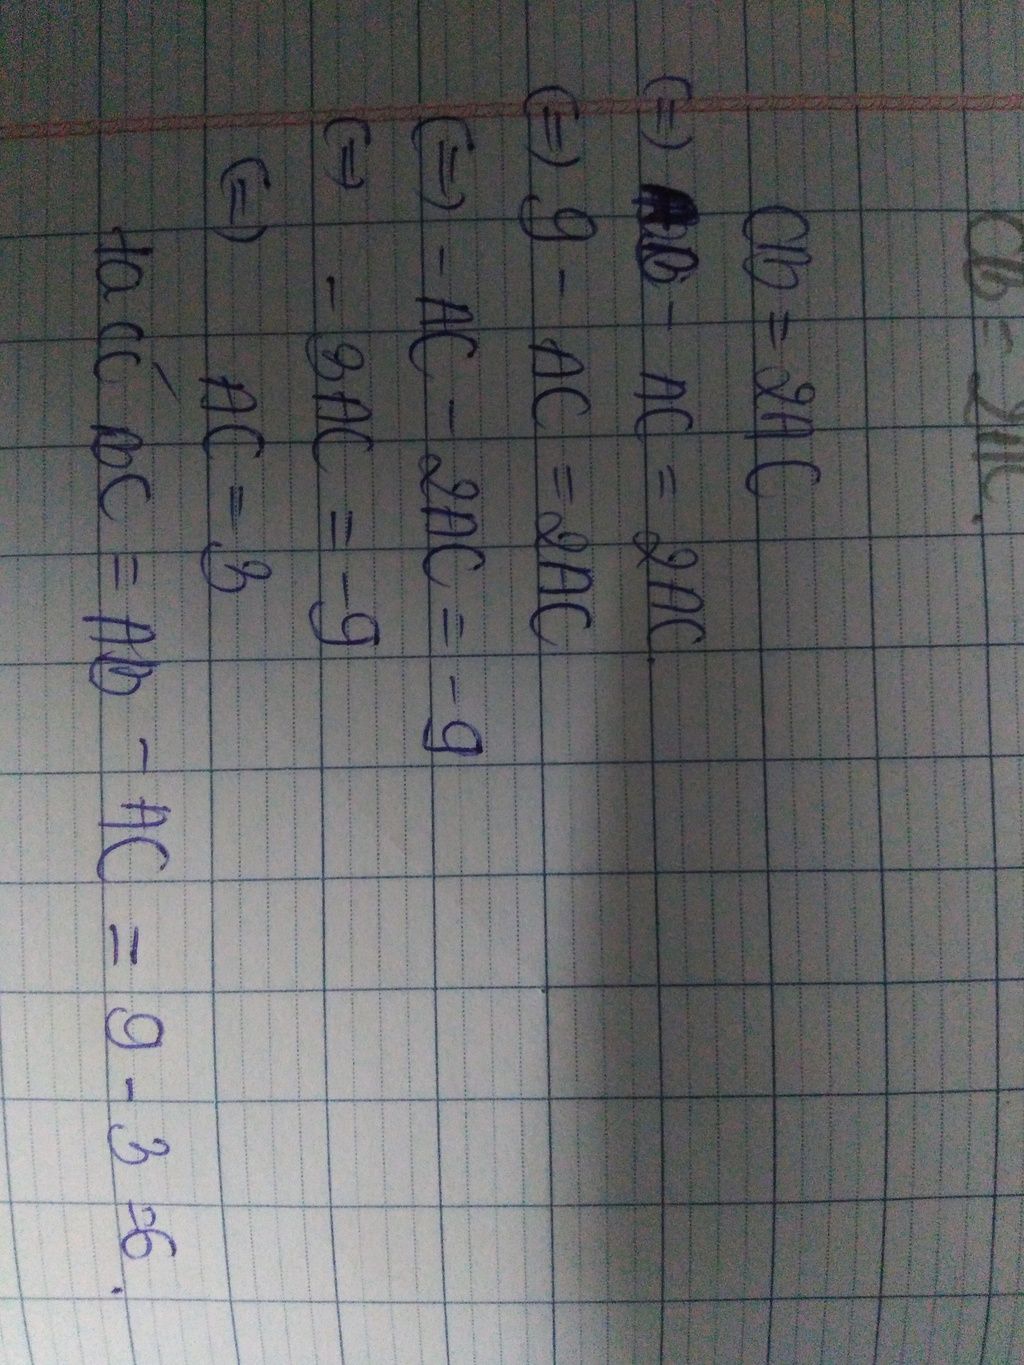 CB = 2AC
CB = 2AC
(=) AB - AC = 2AC
(=) 9 - AC = 2AC
(=) - AC - 2AC = -9
(=) - 3AC = -9
(=) AC = 3
Ta có BC = AB - AC = 9 - 3 = 6.